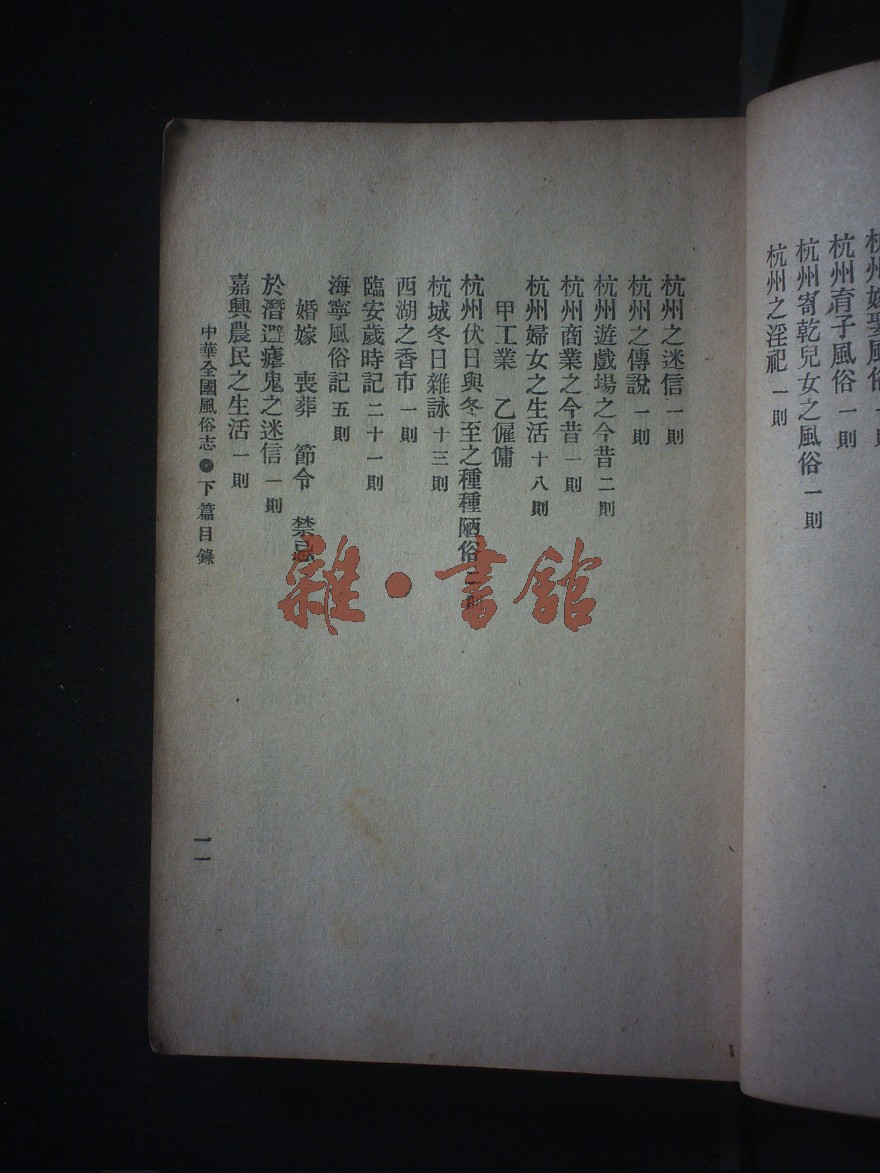 杭州育子風俗 一則
杭州寄乾兒女之風俗 一則
杭州之淫祀 一則
杭州之迷信 一則
杭州之傳說 一則
杭州遊戲場之今昔 二則
杭州商業之今昔 一則
杭州婦女之生活 十八則
甲工業 乙傭傭
杭州伏日與冬至之種種陋俗
杭城冬日雜詠 十三則
西湖之香市 一則
臨安歲時記 二十一則
海寧風俗記 五則
婚嫁 喪葬 節令 禁忌
於潛避瘧鬼之迷信 一則
嘉興農民之生活 一則
中華全國風俗志 下篇目錄
一一
雜·書館